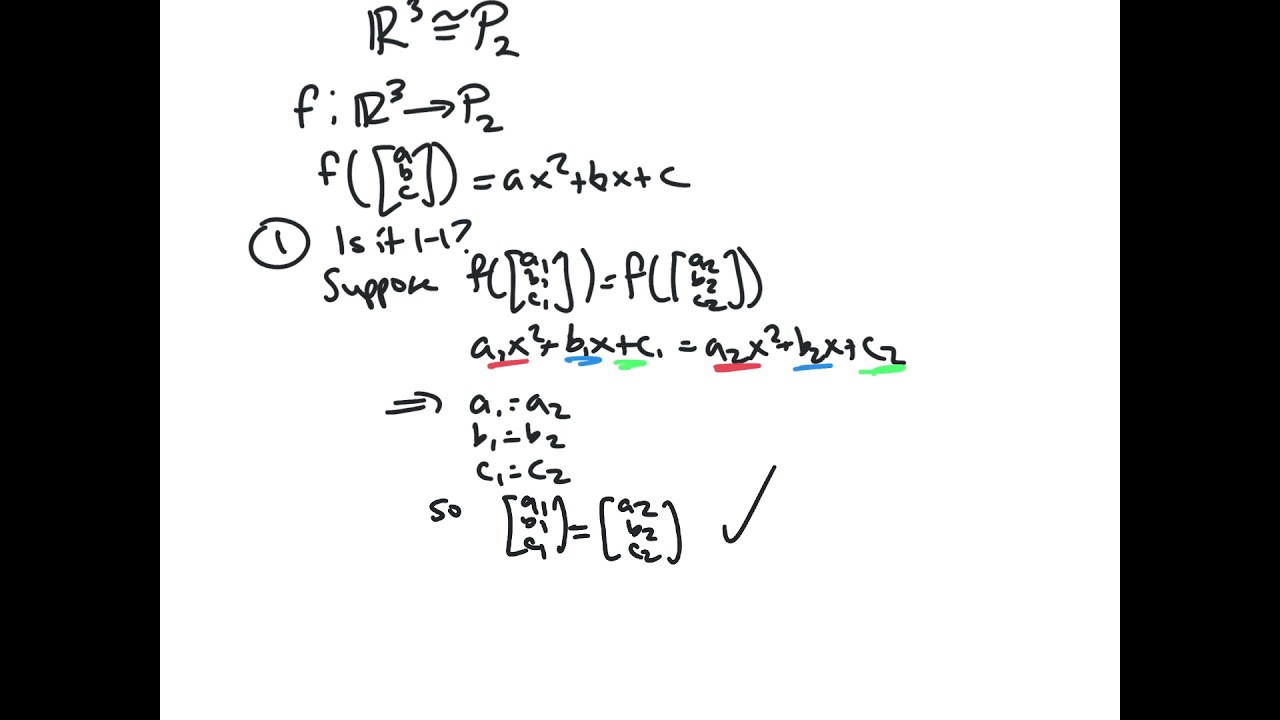 ℝ³ ≅ P₂
f : ℝ³ → P₂
f([a b c]) = ax² + bx + c
① Is it 1-1?
Suppose f([a₁ b₁ c₁]) = f([a₂ b₂ c₂])
a₁x² + b₁x + c₁ = a₂x² + b₂x + c₂
⇒ a₁ = a₂
b₁ = b₂
c₁ = c₂
so [a₁ b₁ c₁] = [a₂ b₂ c₂] ✓